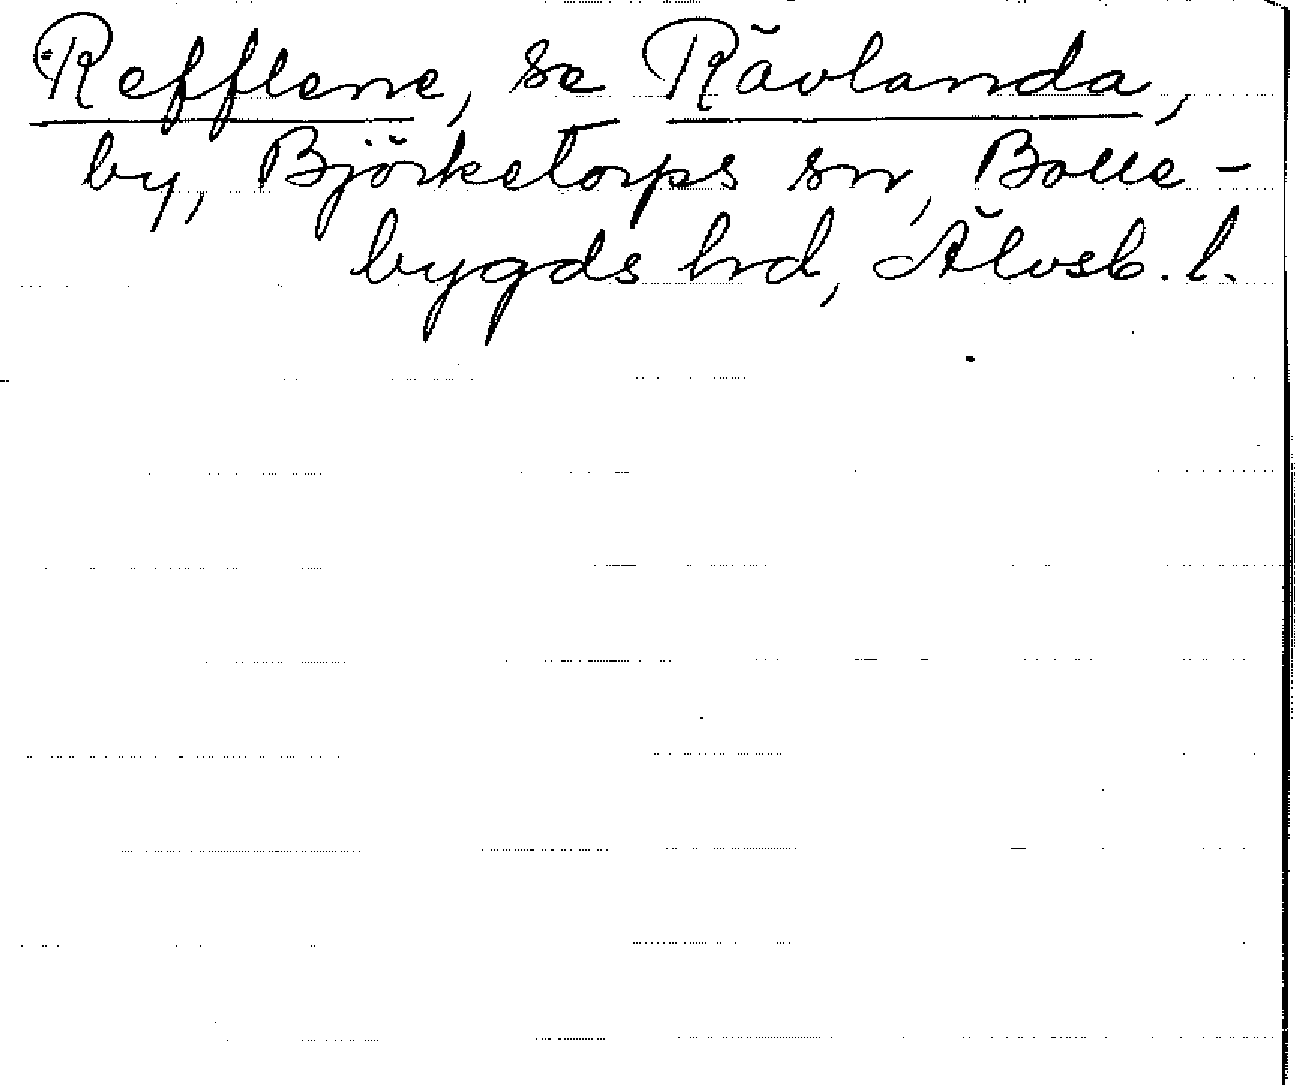 Refflene, se Rävlanda,
by, Björketorps sn, Bolle-
bygds hd, Älvsb. l.